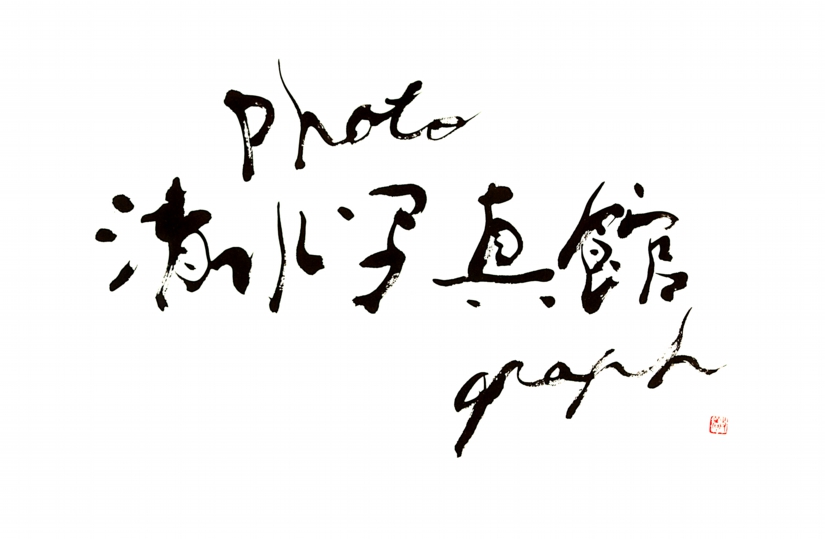 photo
清水写真館
graph